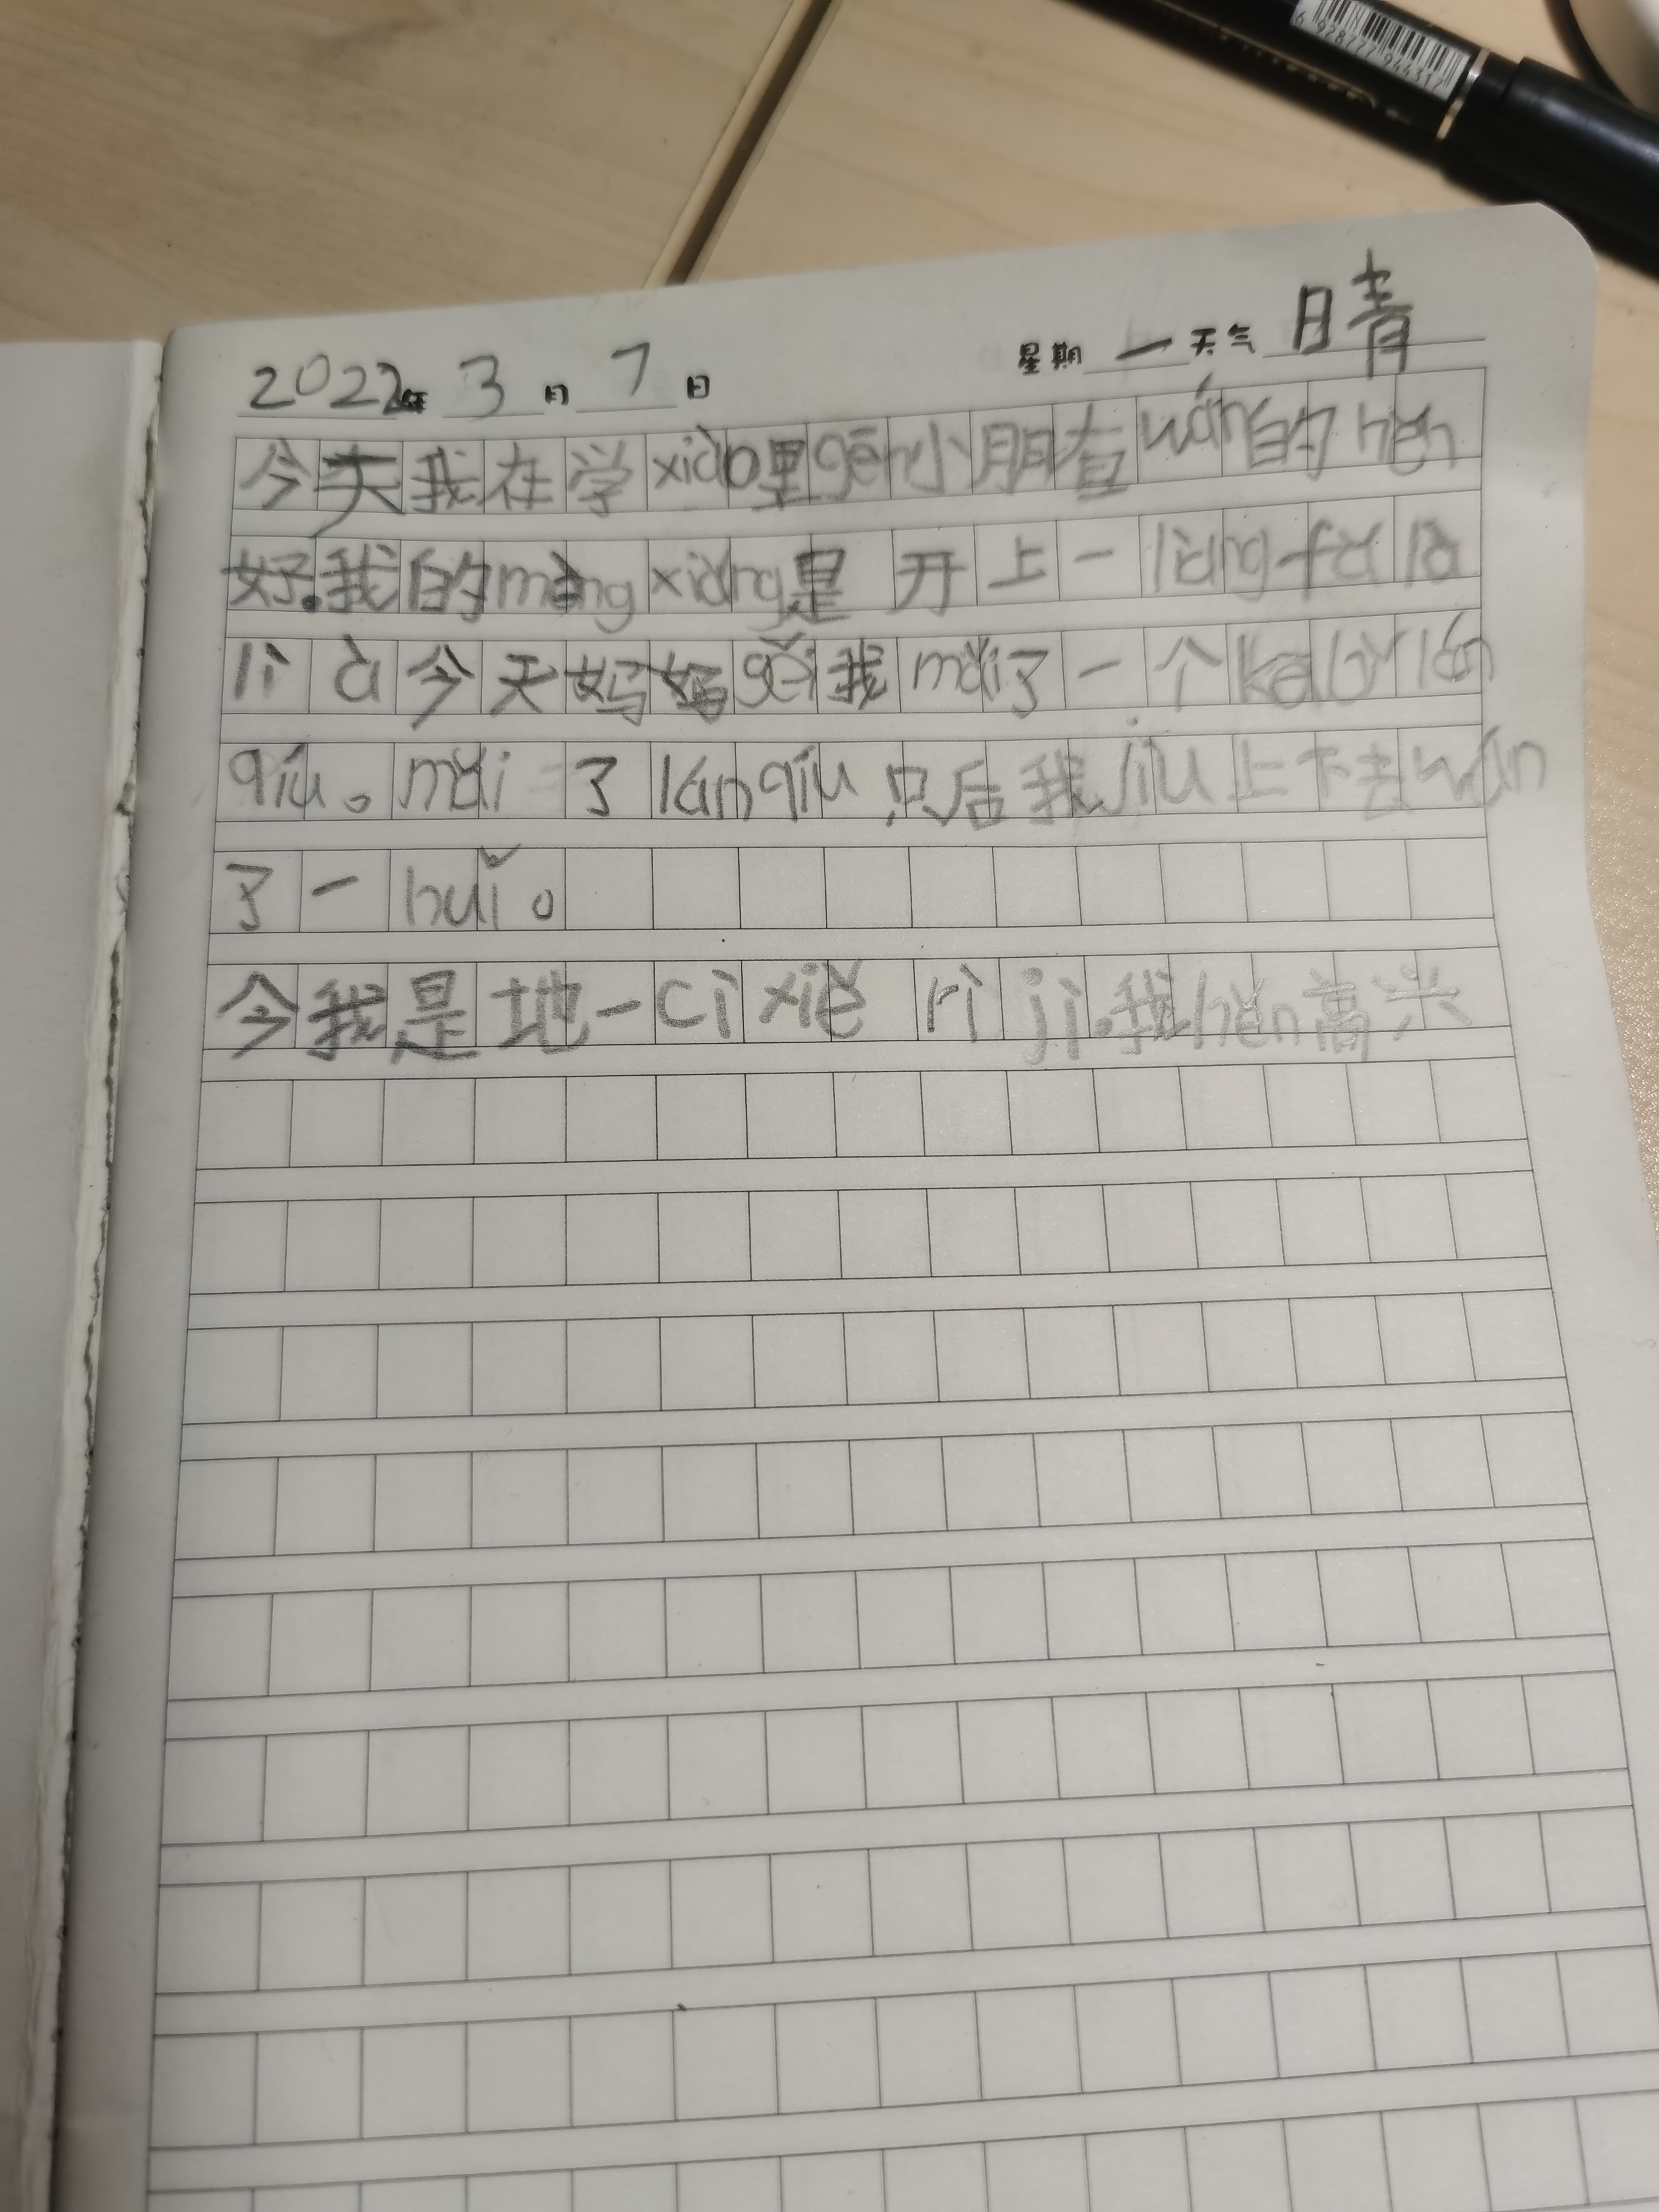 6 928777 944317
2022年 3 月 7 日 星期 一 天气 晴
今天我在学xiào里gēn小朋有wán的hěn
好.我的mèngxiǎng是开上一liàng fǎ lā
lì à 今天妈妈gěi我mǎi了一个kē bǐ lán
qiú。mǎi了lánqiú只后我jiù上下去wán
了一huǐ。
今我是地一cì xiě rì jì.我hěn高兴